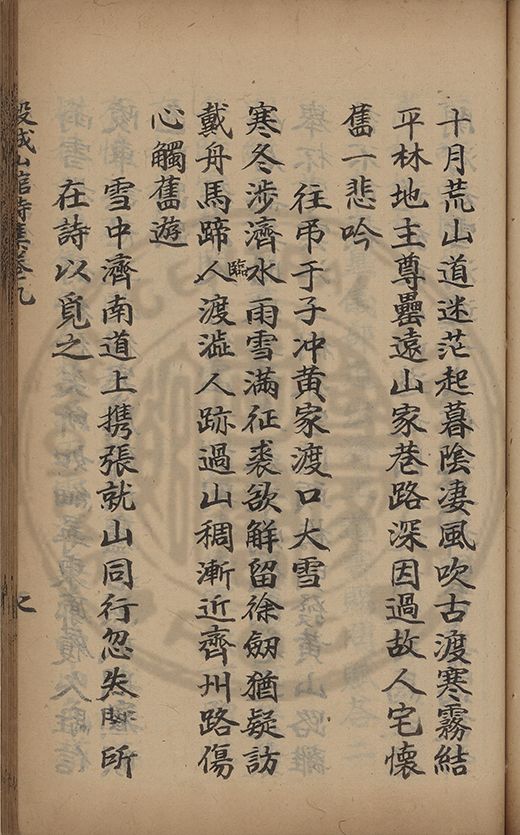 十月荒山道迷茫起暮陰凄風吹古渡寒霧結
平林地主尊罍遠山家巷路深因過故人宅懷
舊一悲吟
往弔于子冲黄家渡口大雪
寒冬涉濟水雨雪滿征裘欲解留徐劒猶疑訪
臨
戴舟馬蹄人渡澁人跡過山稠漸近齊州路傷
心觸舊遊
雪中濟南道上携張就山同行忽失所
在詩以覓之
穀城山館詩集卷九
七